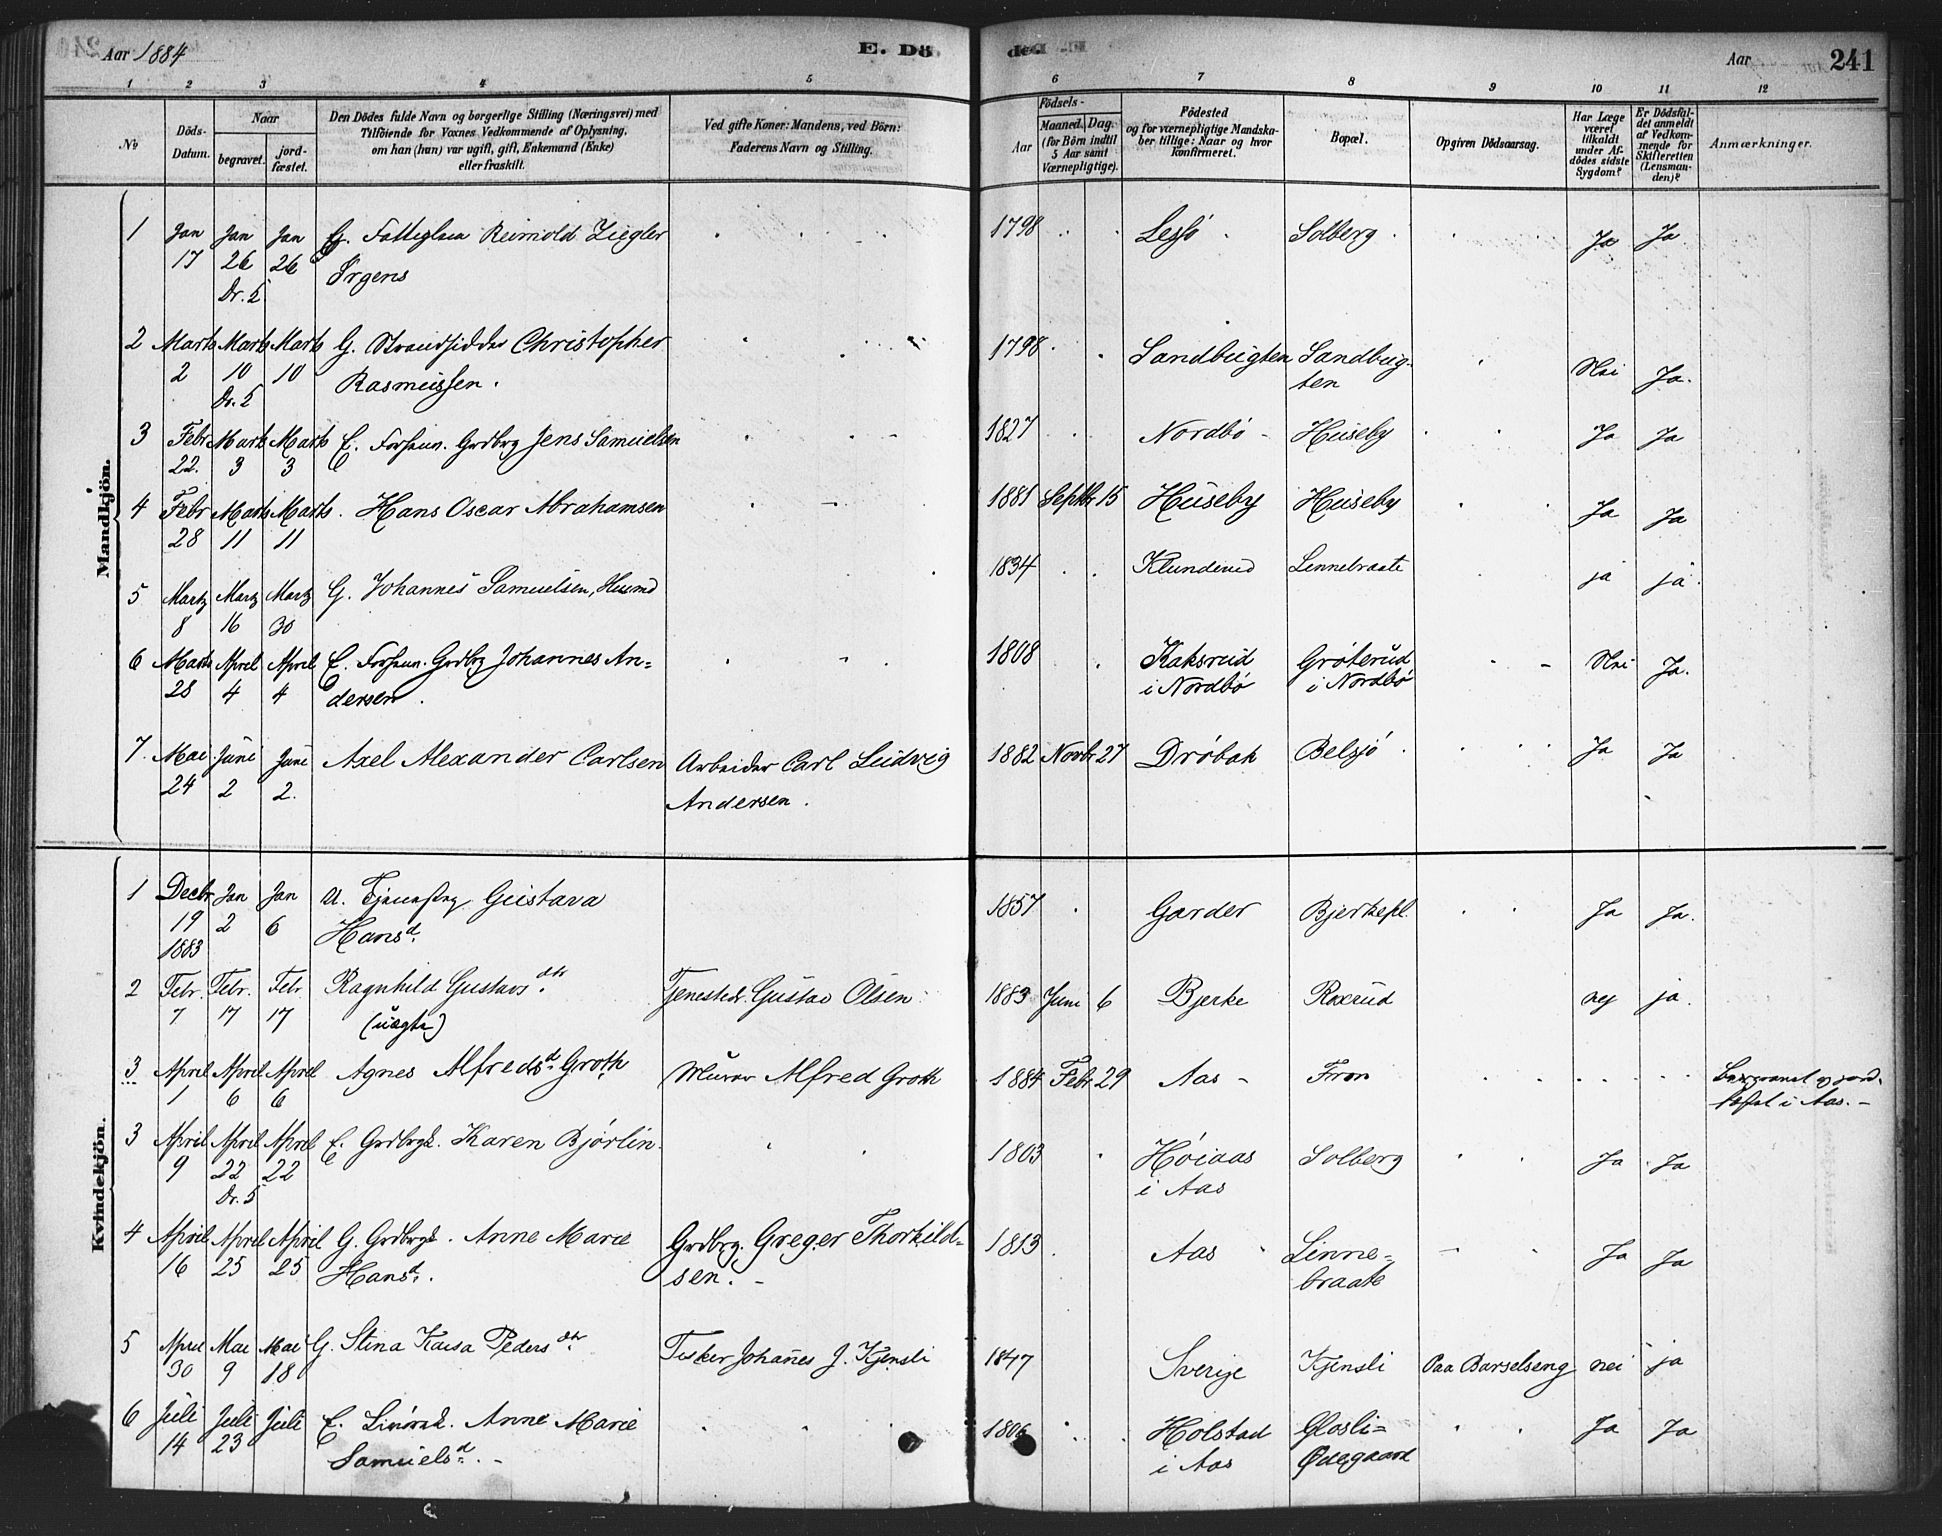 Aar 1884 E. Dö
1 2 3 4 5
No
Döds-Datum.
Naar
begravet.
jord-fæstet.
Den Dödes fulde Navn og borgerlige Stilling (Næringsvei) med
Tilföiende for Voxnes Vedkommende af Oplysning,
om han (hun) var ugift, gift, Enkemand (Enke)
eller fraskilt.
Ved gifte Koner: Mandens, ved Börn:
Faderens Navn og Stilling.
ded Aar 241
6 7 8 9 10 11 12
Födsels-
Aar
Maaned. Dag.
(for Börn indtil
5 Aar samt
Værnepligtige).
Födested
og for værnepligtige Mandska-
ber tillige: Naar og hvor
konfirmeret.
Bopæl.
Opgiven Dödsaarsag.
Har Læge
været
tilkaldt
under Af-
dödes sidste
Sygdom?
Er Dödsfal-
det anmeldt
af Vedkom-
mende for
Skifteretten
(Lensman-
den)?
Anmærkninger.
Mandkjön.
1 Jan Jan Jan Reinhold Ziegler 1798 Solberg Ja Ja
17 26 26 Ørgens
Dr. 5
2 Marts Marts Marts G. Strandsidder Christopher 1798 Sandbugten Sandbug-
2 10 10 Rasmussen. ten Nei Ja.
Dr. 5
3 Febr Marts Marts E. Forhen. Grdbrg Jens Samuelsen 1827 Nordbö Huseby Ja Ja
22. 3 3
4 Febr Marts Marts. Hans Oscar Abrahamsen 1881 Septbr 15 Huseby Huseby Ja Ja
28 11 11
5 Marts Marts Marts G. Johannes Samuelsen, Husmd 1834 Klunderud Linnebraate ja ja.
8 16 30
6 Marts April April E. Forhen. Grdbrg Johannes An= 1808 Kaksrud Gröterud Nei Ja.
28 4 4 dersen. i Nordbö i Nordbö
7. Mai Juni Juni Axel Alexander Carlsen Arbeider Carl Ludvig 1882 Novbr 27 Dröbak Belsjö Ja Ja
24 2 2. Andersen.
Kvindekjön.
1 Decbr Jan Jan U. Gustava 1857 Garder Bjerkepl. Ja Ja.
19 2 6 Hansd.
1883
2 Febr. Febr. Febr Ragnhild Gustavsdtr. Tjenestedr. Gustav Olsen 1883 Juni 6 Bjerke Roxrud nej ja.
7 17 17 (uægte)
3 April April April Agnes Alfredsd. Groth Murer Alfred Groth 1884 Febr 29 Aas - Fron Begravet og jord-
1 6 6 fæstet i Aas. -
3 April April April E. Grdbrgk. Karen Björlin. 1803 Höiaas Solberg Ja Ja
9 22 22 i Aas
Dr. 5
4 April April April G. Grdbrgk. Anne Marie Grdbrg. Greger Thorkild= 1813 Aas Linne= Ja Ja
16 25 25 Hansd. sen. - braate
5 April Mai Mai G. Stina Kaisa Pedersdtr. Johannes J. Kjensli 1847 Sverige Kjensli Paa Barselseng nei ja
30 9 18
6 Juli Juli Juli E. Anne Marie 1806 Holstad Glosli= Ja Ja
14 23 Samuelsd. - i Aas Ødegaard